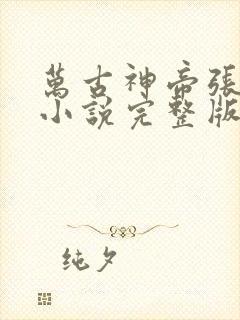 萬古神帝張
小說完整版
純夕